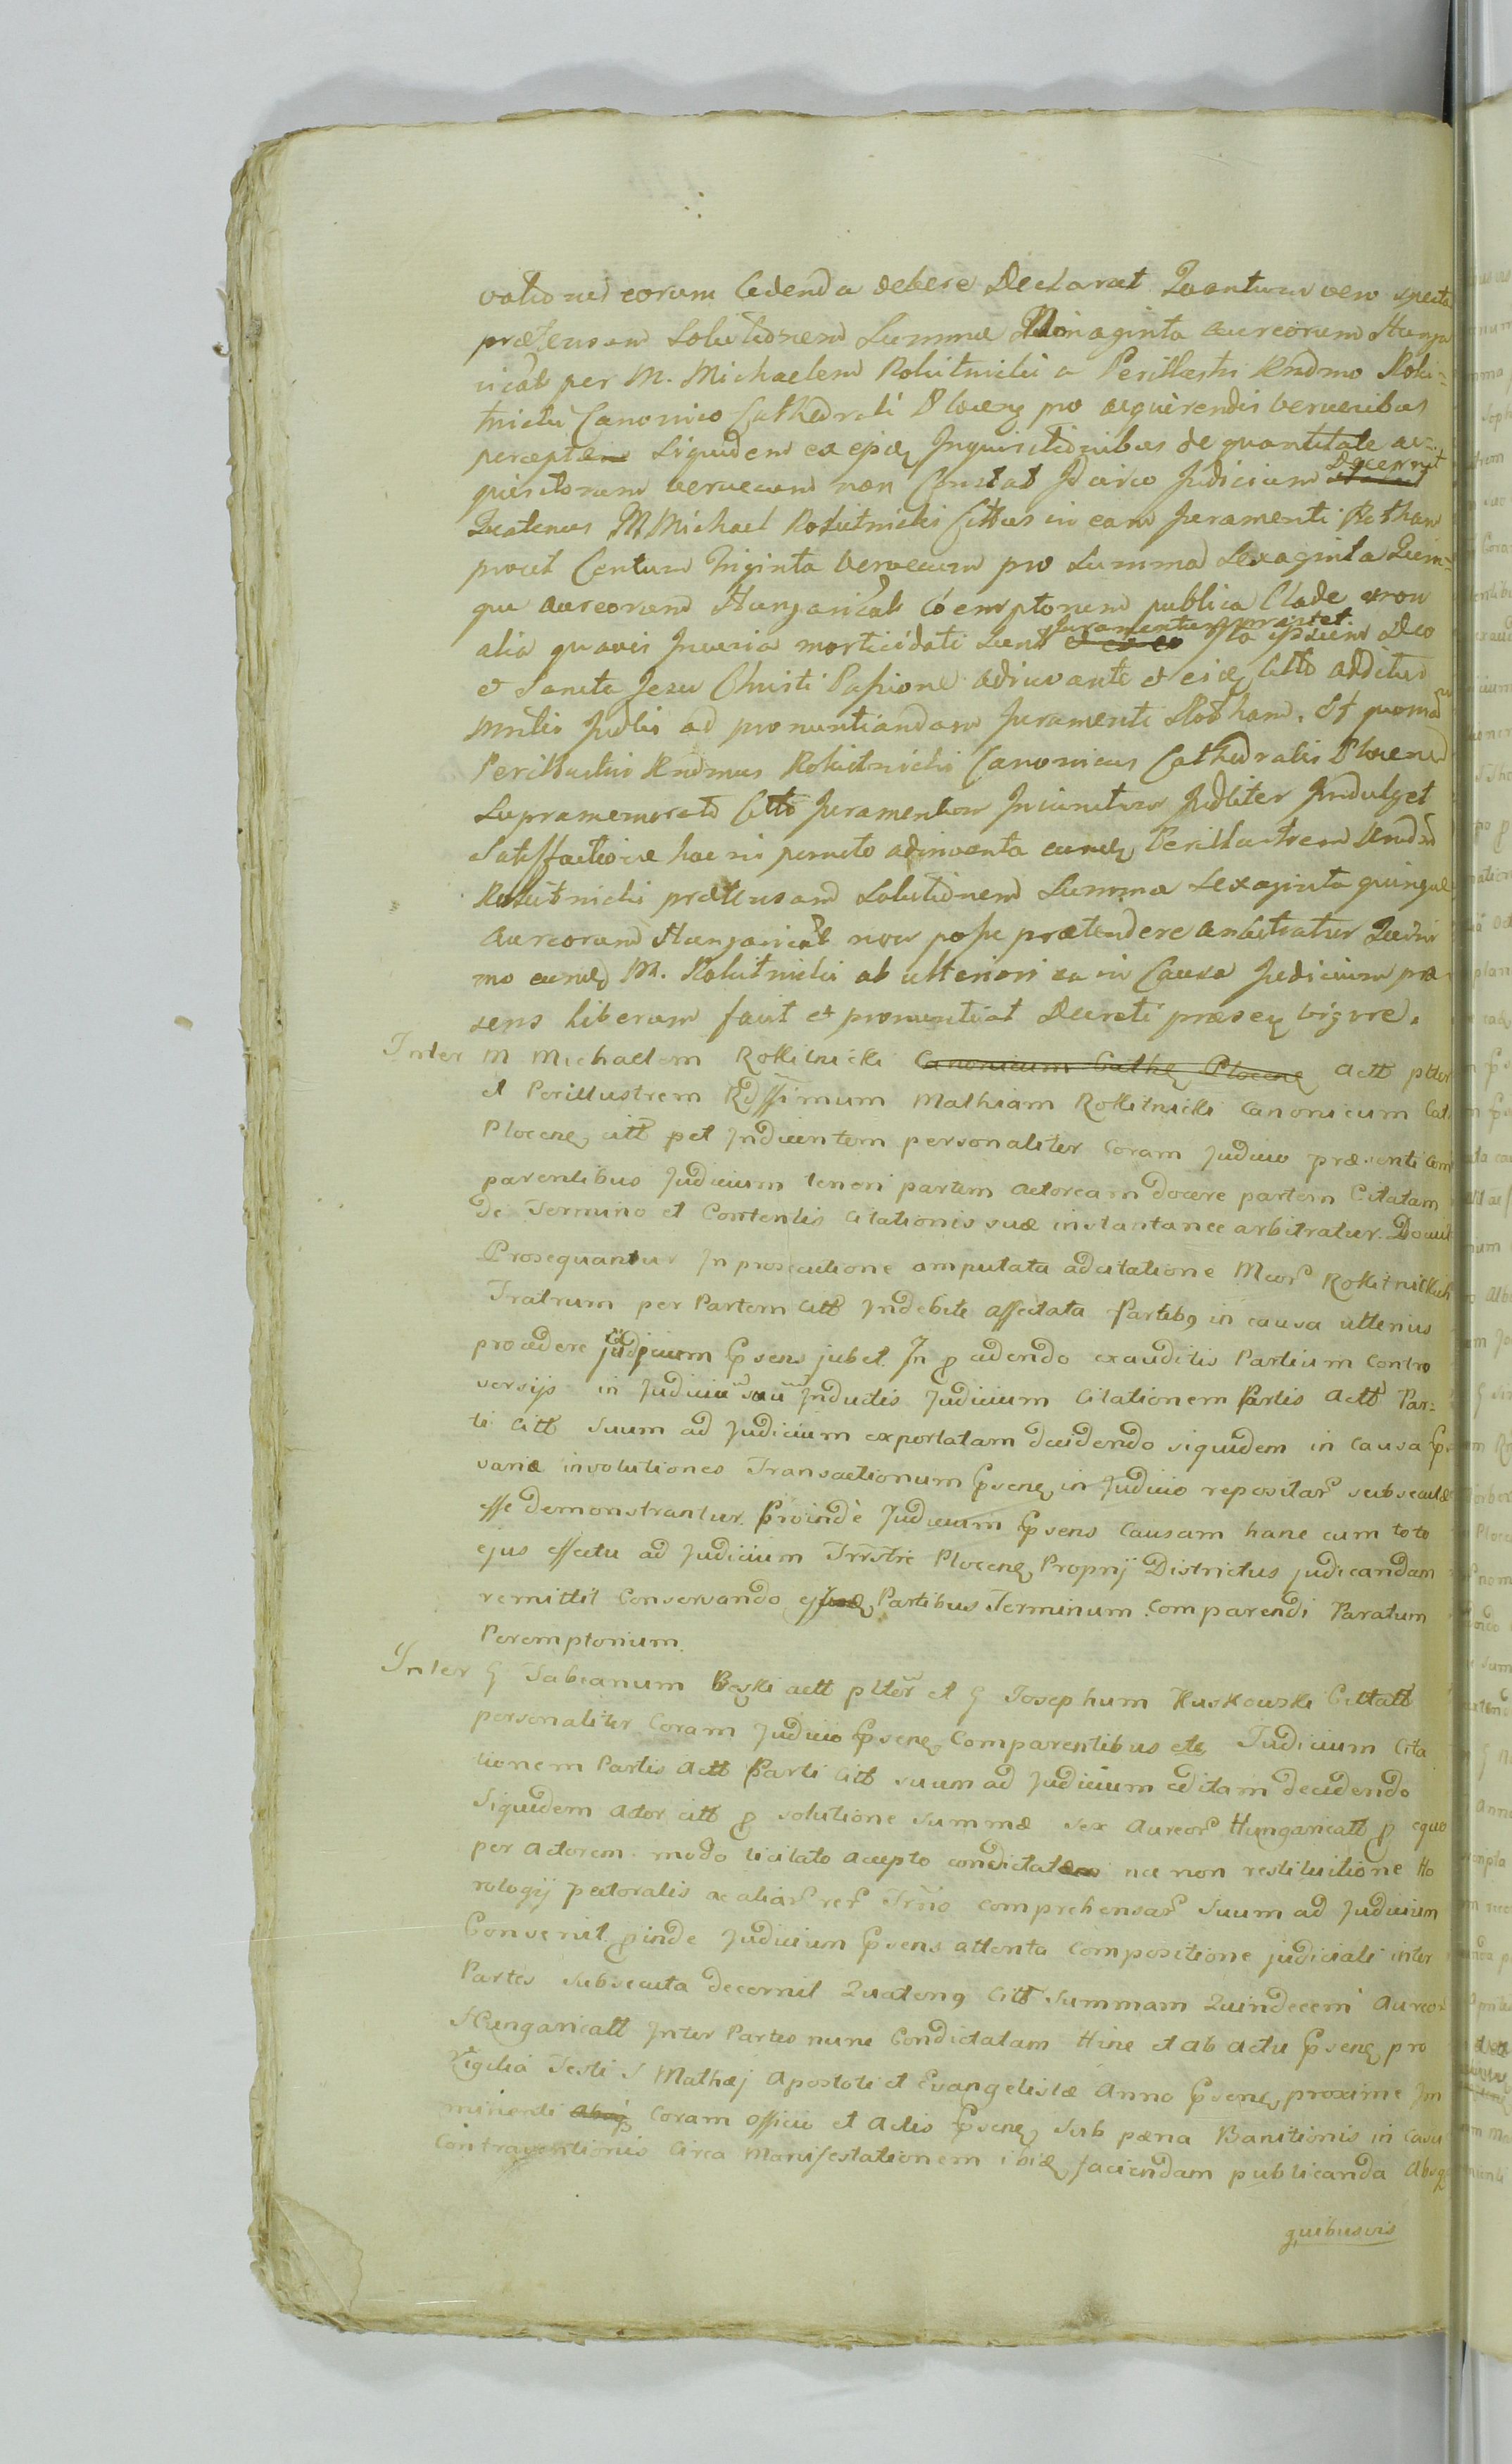 vationed eorum Cedenda debere Declarat. Quantum vero specta
prætensam Solutionem Summæ Nonaginta aureorum Hunga
ricalt per M. Michaelem Rokitnicki a Perillustri Rndmo Roki-
tnicki Canonico Cathedrali Plocen pro acquirendis vervecibus
percept Siquidem ex ejsdq Inquisitionibus de quantitate ac-
quisitorum vervecum non Constat Idcirco Judicium Decernit
Quatenus M Michael Rokitnicki Cittus in eam Juramenti Rotham
prout Centum Triginta vervecum pro Summa Sexaginta Quin-
que aureorum Hungaricalt Coemptorum publica Clade et non
alia quavis Incuria morticidati Sunt Juramentum præstet. Ita ipsum Deo
et Sancta Jesu Christi Passione adiuvante et eidq Citto additur
Mntlis Judlis ad pronuntiandam Juramenti Rotham. Et quomo
Perillustris Rndmus Rokitnicki Canonicus Cathedralis Plocens
Supramemorato Citto Juramentum Iniunctum Judliter Indulget
Satisfactione hac in puncto adinventa eundq Perillustrem Rndm
Rokitnicki prætensam Solutionem Summæ Sexaginta quinque
Aureorum Hungaricalt non posse prætendere arbitratur Quin
mo eundq M. Rokitnicki ab ulteriori ea in Causa Judicium præ
sens liberum facit et pronuntiat Decreti præseq vigore.
Inter M Michaelem Rokitnicki Canonicum Cathe Plocene Actt ptler
et Perillustrem Rdssimum Mathiam Rokitnicki Canonicum Cat
Plocene citt pet Inducentem personaliter Coram Judicio præsenti Com
parentibus Judicium teneri partem Actoream docere partem Citatam
de Termino et Contentis Citationis suæ instantanee arbitratur. Docuit
Prosequantur In prosecutione amputata adcitatione Mcor Rokitnickich
Fratrum per Partem Citt Indebite affectata Partib9 in causa ulterius
procedere Judicium Psens jubet. In p cedendo exauditis Partium Contro
versijs in Judicio suo Inductis Judicium Citationem Partis Actt Par-
ti Citt Suum ad Judicium exportatam decidendo siquidem in Causa P
variæ involutiones Transactionum Psene in Judicio repositar subsecutæ
esse demonstrantur. Proinde Judicium Psens Causam hanc cum toto
ejus effectu ad Judicium Trrstre Plocene Proprij Districtus judicandam
remittit Conservando Partibus Terminum Comparendi Paratum
Peremptorium.
Inter G Fabianum Beski actt plter et G Josephum Kuskowski Cittatt
personaliter Coram Judicio Psene Comparentibus etc Judicium Cita
tionem Partis Actt Parti Citt suum ad Judicium editam decidendo
Siquidem Actor citt p solutione summæ sex Aureor Hungaricatt p equo
per Actorem modo licitato acepto condictat nec non restituitione Ho
rologij pectoralis ac aliar rer Trmo comprehensar Suum ad Judicium
Convenit pinde Judicium Psens attenta Compositione judiciali inter
Partes subsecuta decernit Quaten9 Citt Summam Quindecem Aureor
Hungaricatt Inter Partes nunc Condictatam Hinc et ab actu Psene pro
Vigilia Festi S Mathæj Apostoli et Evangelistæ Anno Psene proxime Im
minenti Coram officio et Actis Psene Sub pæna Banitionis in Casu
Contraventionis Circa Manifestationem ibidq faciendam publicanda Absq
quibusvis